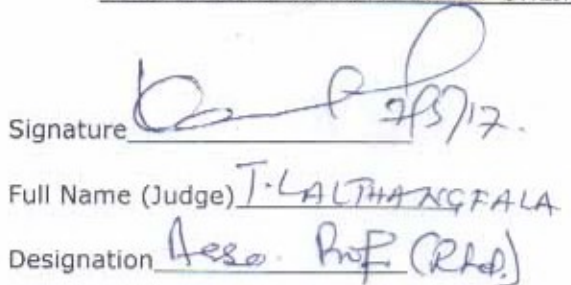 Signature 7/5/17.
Full Name (Judge) T. LALTHANGFALA
Designation Asso. Prof. (Rtd.)